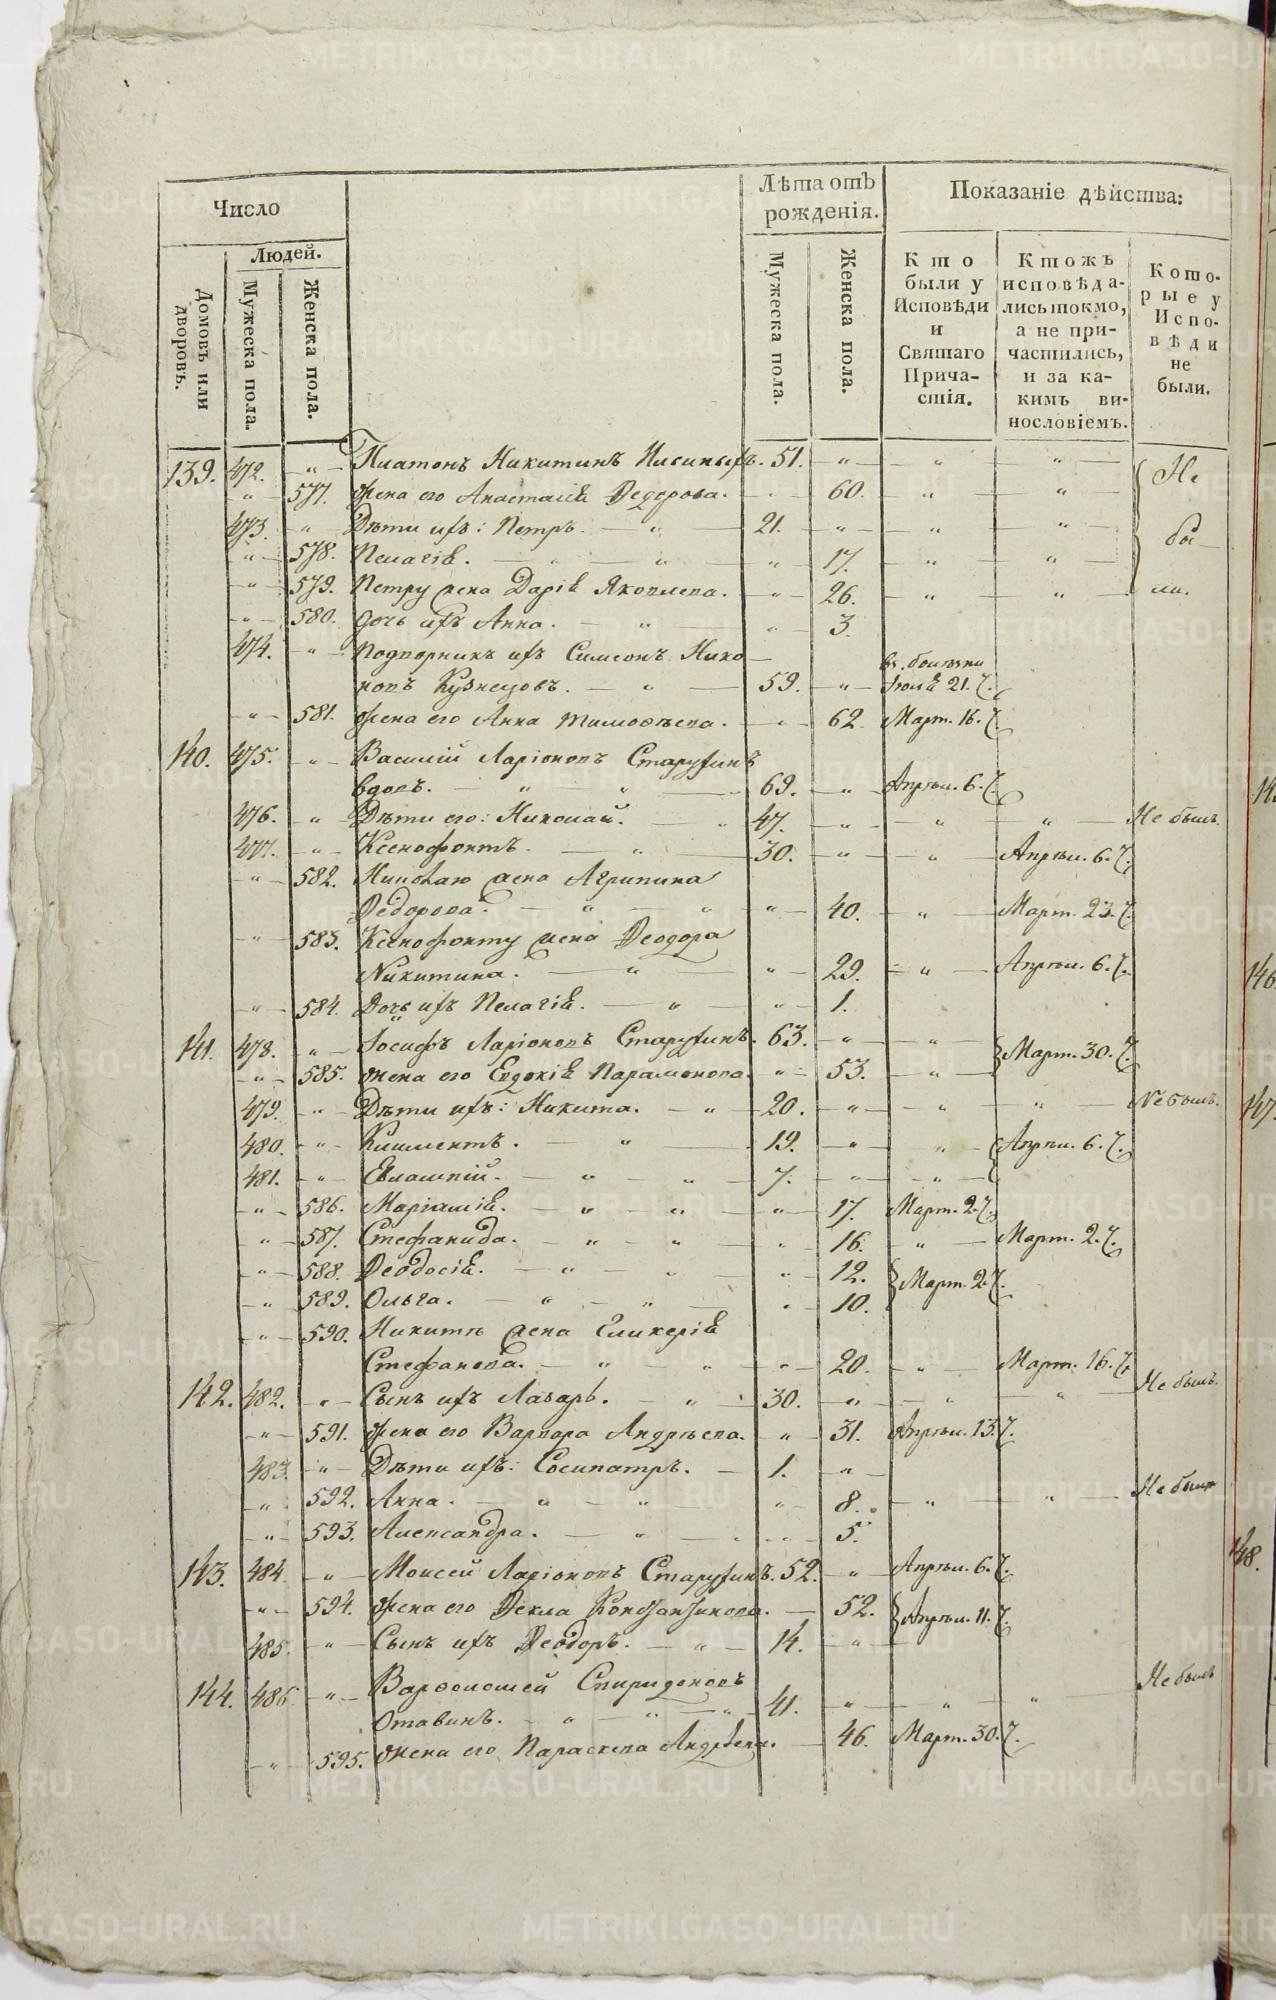 Число
Лѣта отъ рожденія.
Показаніе дѣйства:
Домовъ или дворовъ.
Людей.
Мужеска пола.
Женска пола.
Мужеска пола.
Женска пола.
Кто были у Исповѣди и Святаго Причастія.
Ктожъ исповѣдались токмо, а не причастились, и за какимъ винословіемъ.
Которые у Исповѣди не были.
139. 472. " Платонъ Никитинъ 51. " " " Не
" 577. жена его Анастасія Ѳедорова. " 60. " "
473. " Дѣти ихъ: Петръ. " 21. " " " бы
" 578. Пелагія. " " " 17. " "
" 579. Петру жена Дарія Яковлева. " 26. " " ли.
" 580. дочь ихъ Анна. " " 3.
474. " Подворникъ ихъ Симеонъ Нико
новъ Кузнецовъ. " 59. " въ болѣзни Іюля 21. Ч.
" 581. жена его Анна Тимоѳѣева. " 62. Март. 16. Ч.
140. 475. " Василій Ларіоновъ Старухинъ
вдовъ. " " 69. " Апрѣл. 6. Ч.
476. " Дѣти его: Николай. " 47. " " " Не былъ.
477. " Ксенофонтъ. " 30. " " Апрѣл. 6. Ч.
" 582. Николаю жена Агрипина
Ѳедорова. " " " 40. " Март. 23. Ч.
" 583. Ксенофонту жена Ѳеодора
Никитина. " " 29. " Апрѣл. 6. Ч.
" 584. Дочь ихъ Пелагія. " " 1.
141. 478. " Іосифъ Ларіоновъ Старухинъ. 63. " " Март. 30. Ч.
" 585. жена его Евдокія Парамонова. " 53. "
479. " Дѣти ихъ: Никита. " 20. " " " Не былъ.
480. " Климентъ. " 19. " " Апрѣл. 6. Ч.
481. " Евлампій. " " 7. " "
" 586. Маріамія. " " " 17. Март. 2. Ч.
" 587. Стефанида. " " " 16. " Март. 2. Ч.
" 588. Ѳеодосія. " " " 12. Март. 2. Ч.
" 589. Ольга. " " " 10.
" 590. Никитѣ жена Гликерія
Стефанова. " " " 20. " Март. 16. Ч.
142. 482. " Сынъ ихъ Лазарь. " 30. " " " Не былъ.
" 591. жена его Варвара Андрѣева. " 31. Апрѣл. 13. Ч.
483. " Дѣти ихъ: Сосипатръ. 1. "
" 592. Анна. " " " 8. " " Не были
" 593. Александра. " " 5.
143. 484. " Моисей Ларіоновъ Старухинъ. 52. " Апрѣл. 6. Ч.
" 594. жена его Ѳекла Константинова. 52. Апрѣл. 11. Ч.
485. " Сынъ ихъ Ѳеодоръ. " 14. "
144. 486. " Варѳоломей Спиридоновъ
Отавинъ. " " " 41. " " " Не былъ
" 595. жена его Параскева Андрѣева. 46. Март. 30. Ч.
146.
147.
148.
METRIKI.GASO-URAL.RU